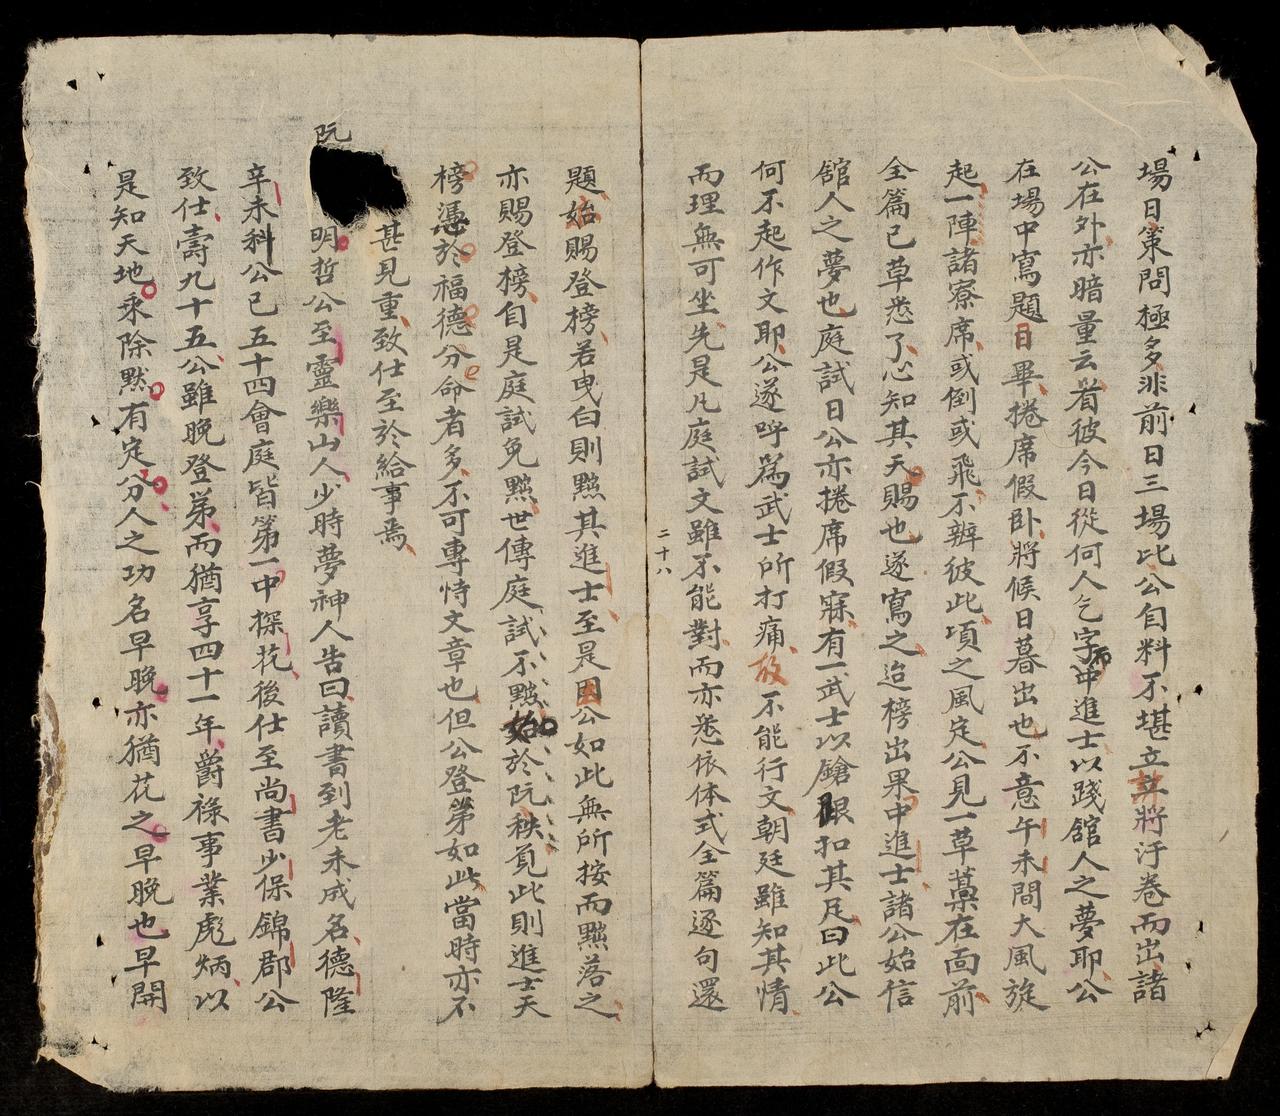 場日策問極多非前日三場比公自料不堪立將汙卷而出諸
公在外亦暗量云看彼今日從何人乞字而中進士以踐舘人之夢耶公
在場中寫題日畢捲席假卧將候日暮出也不意午未間大風旋
起一陣諸寮席或倒或飛不辨彼此頃之風定公見一草藁在面前
全篇已草悉了心知其天賜也遂寫之迨榜出果中進士諸公始信
舘人之夢也庭試日公亦捲席假寐有一武士以鎗銀扣其足曰此公
何不起作文耶公遂呼爲武士所打痛放不能行文朝廷雖知其情
而理無可坐先是凡庭試文雖不能對而亦悉依体式全篇逐句還
二十八
題始賜登榜若曳白則黜其進士至是因公如此無所按而黜落之
亦賜登榜自是庭試免黜世傳庭試不黜始於阮秩負此則進士天
榜憑於福德分命者多不可專恃文章也但公登第如此當時亦不
甚見重致仕至於給事焉
阮明哲公至靈樂山人少時夢神人告曰讀書到老未成名德隆
辛未科公已五十四會庭皆第一中探花後仕至尚書少保錦郡公
致仕壽九十五公雖晚登第而猶享四十一年爵祿事業彪炳以
是知天地乘除黙有定分人之功名早晚亦猶花之早晚也早開